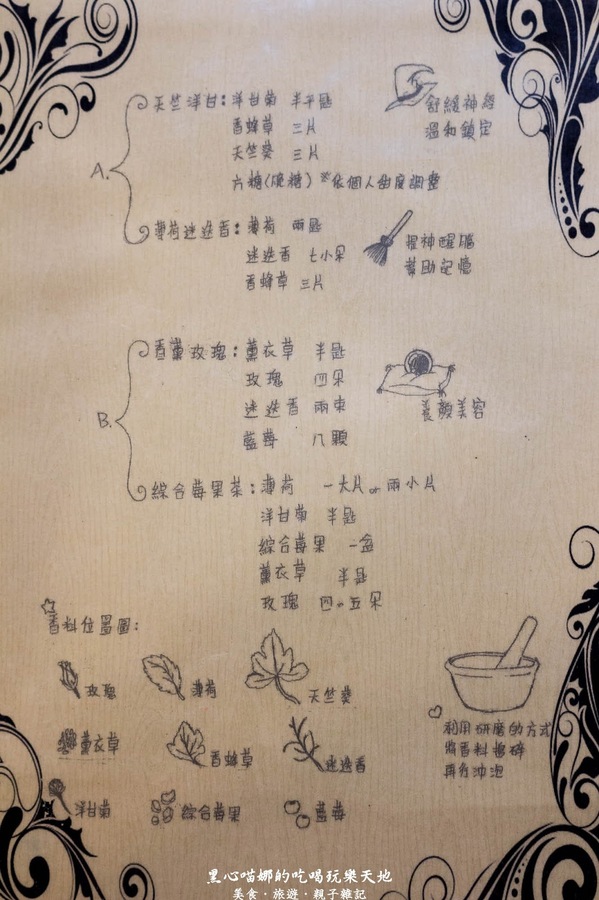 A.
天竺洋甘：洋甘菊 半平匙
香蜂草 三片
天竺葵 三片
方糖(晚糖) ※依個人甜度調整
舒緩神經
溫和鎮定
薄荷迷迭香：薄荷 兩匙
迷迭香 七小朵
香蜂草 三片
提神醒腦
幫助記憶
B.
香薰玫瑰：薰衣草 半匙
玫瑰 四朵
迷迭香 兩束
藍莓 八顆
養顏美容
綜合莓果茶：薄荷 一大片or兩小片
洋甘菊 半匙
綜合莓果 一盒
薰衣草 半匙
玫瑰 四or五朵
香料位置圖：
玫瑰 薄荷 天竺葵
薰衣草 香蜂草 迷迭香
洋甘菊 綜合莓果 藍莓
利用研磨的方式
將香料搗碎
再行沖泡
黑心喵娜的吃喝玩樂天地
美食·旅遊·親子雜記